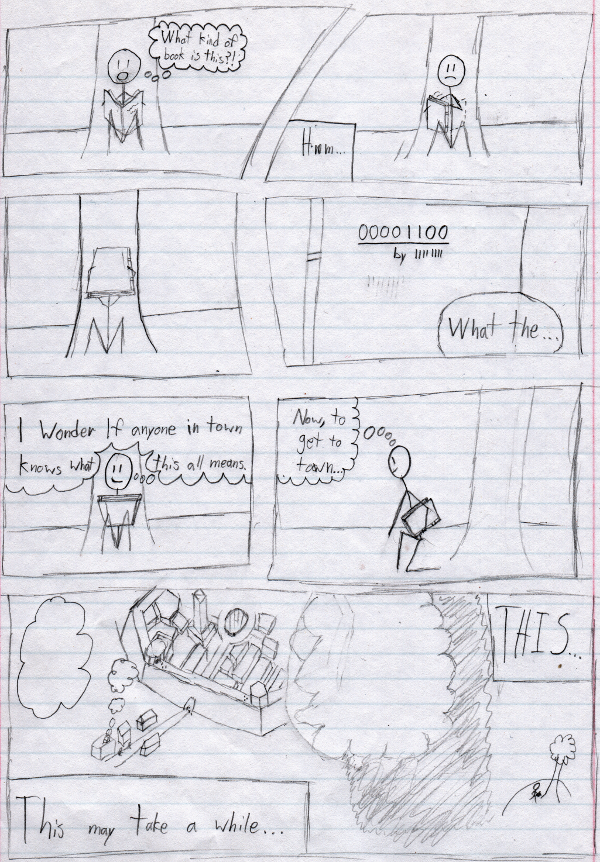 What kind of
book is this?!
Hmm...
00001100
by 11111111
What the...
I Wonder If anyone in town
knows what this all means.
Now, to
get to
town...
THIS...
This may take a while...